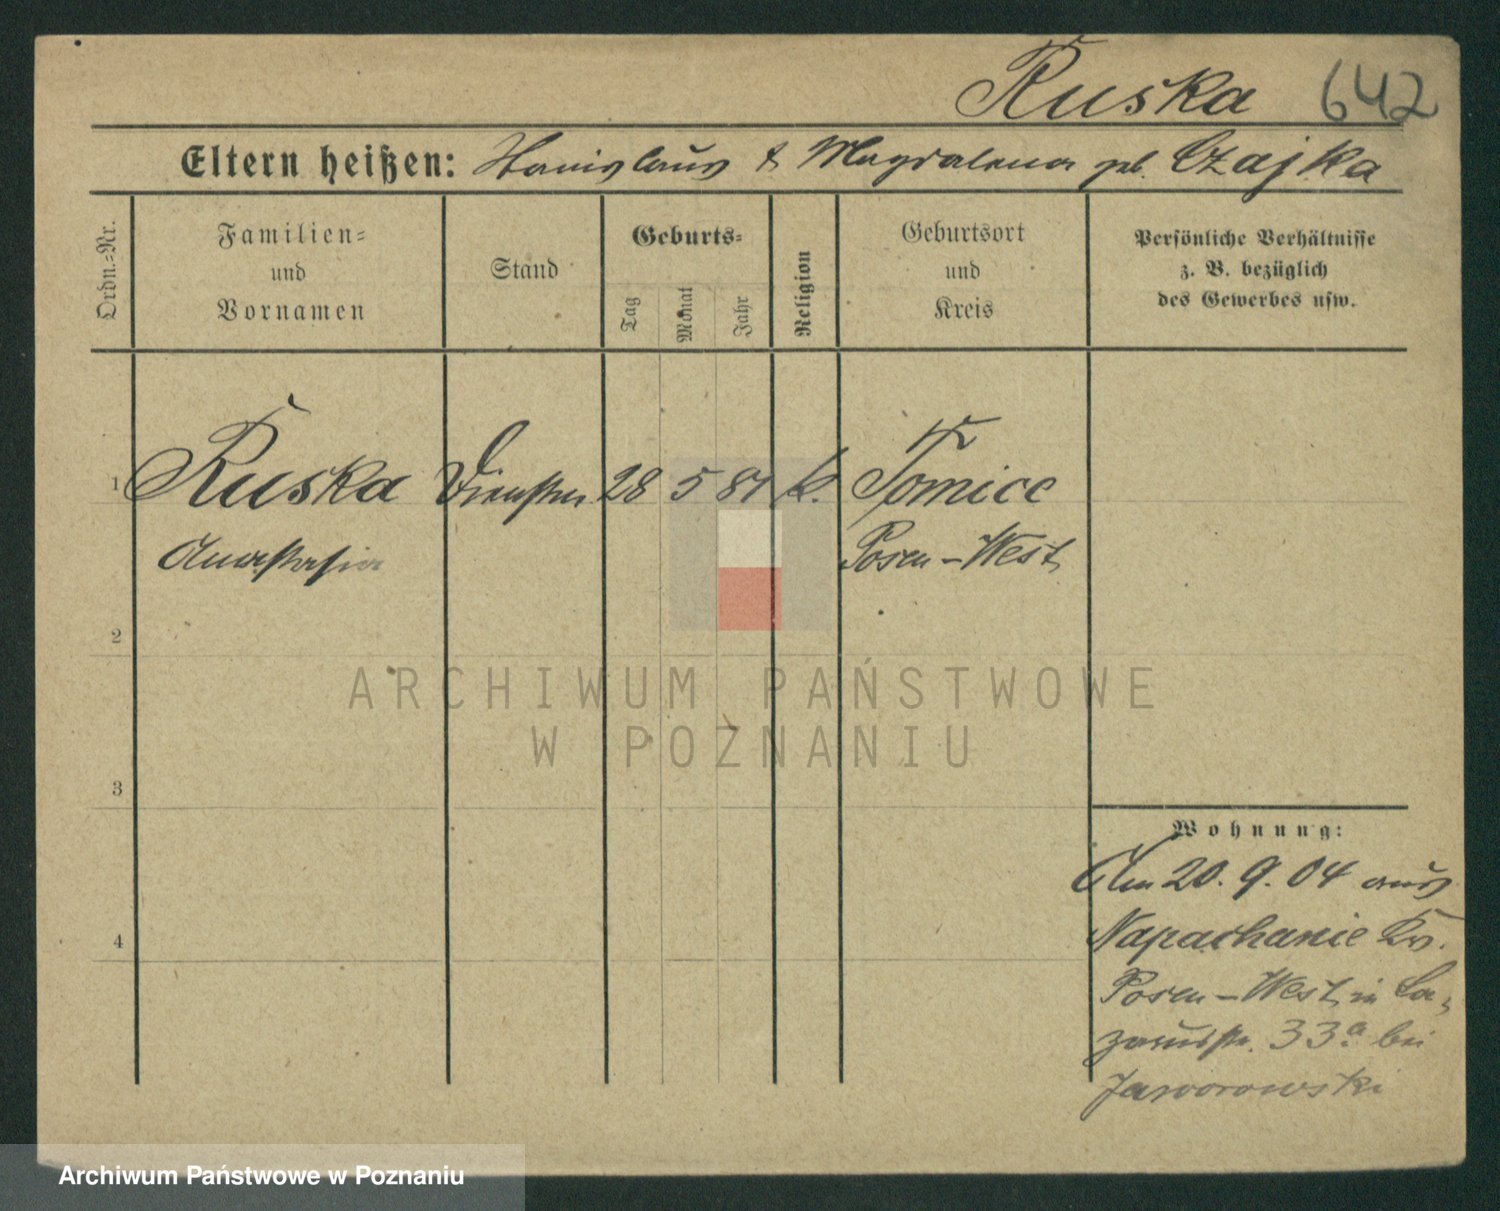 Ruska 642
Eltern heißen: Stanislaus & Magdalena geb. Czajka
Ordn.-Nr.
Familien-
und
Vornamen
Stand
Geburts-
Tag
Monat
Jahr
Religion
Geburtsort
und
Kreis
Persönliche Verhältnisse
z. B. bezüglich
des Gewerbes usw.
1 Ruska 28 5 81 k. Tomice
Anastasia Posen-West
2
3
4
Wohnung:
Am 20. 9. 04 aus
Napachanie Kr.
Posen-West, in La-
zarusstr. 33a bei
Jaworowski
ARCHIWUM PAŃSTWOWE
W POZNANIU
Archiwum Państwowe w Poznaniu